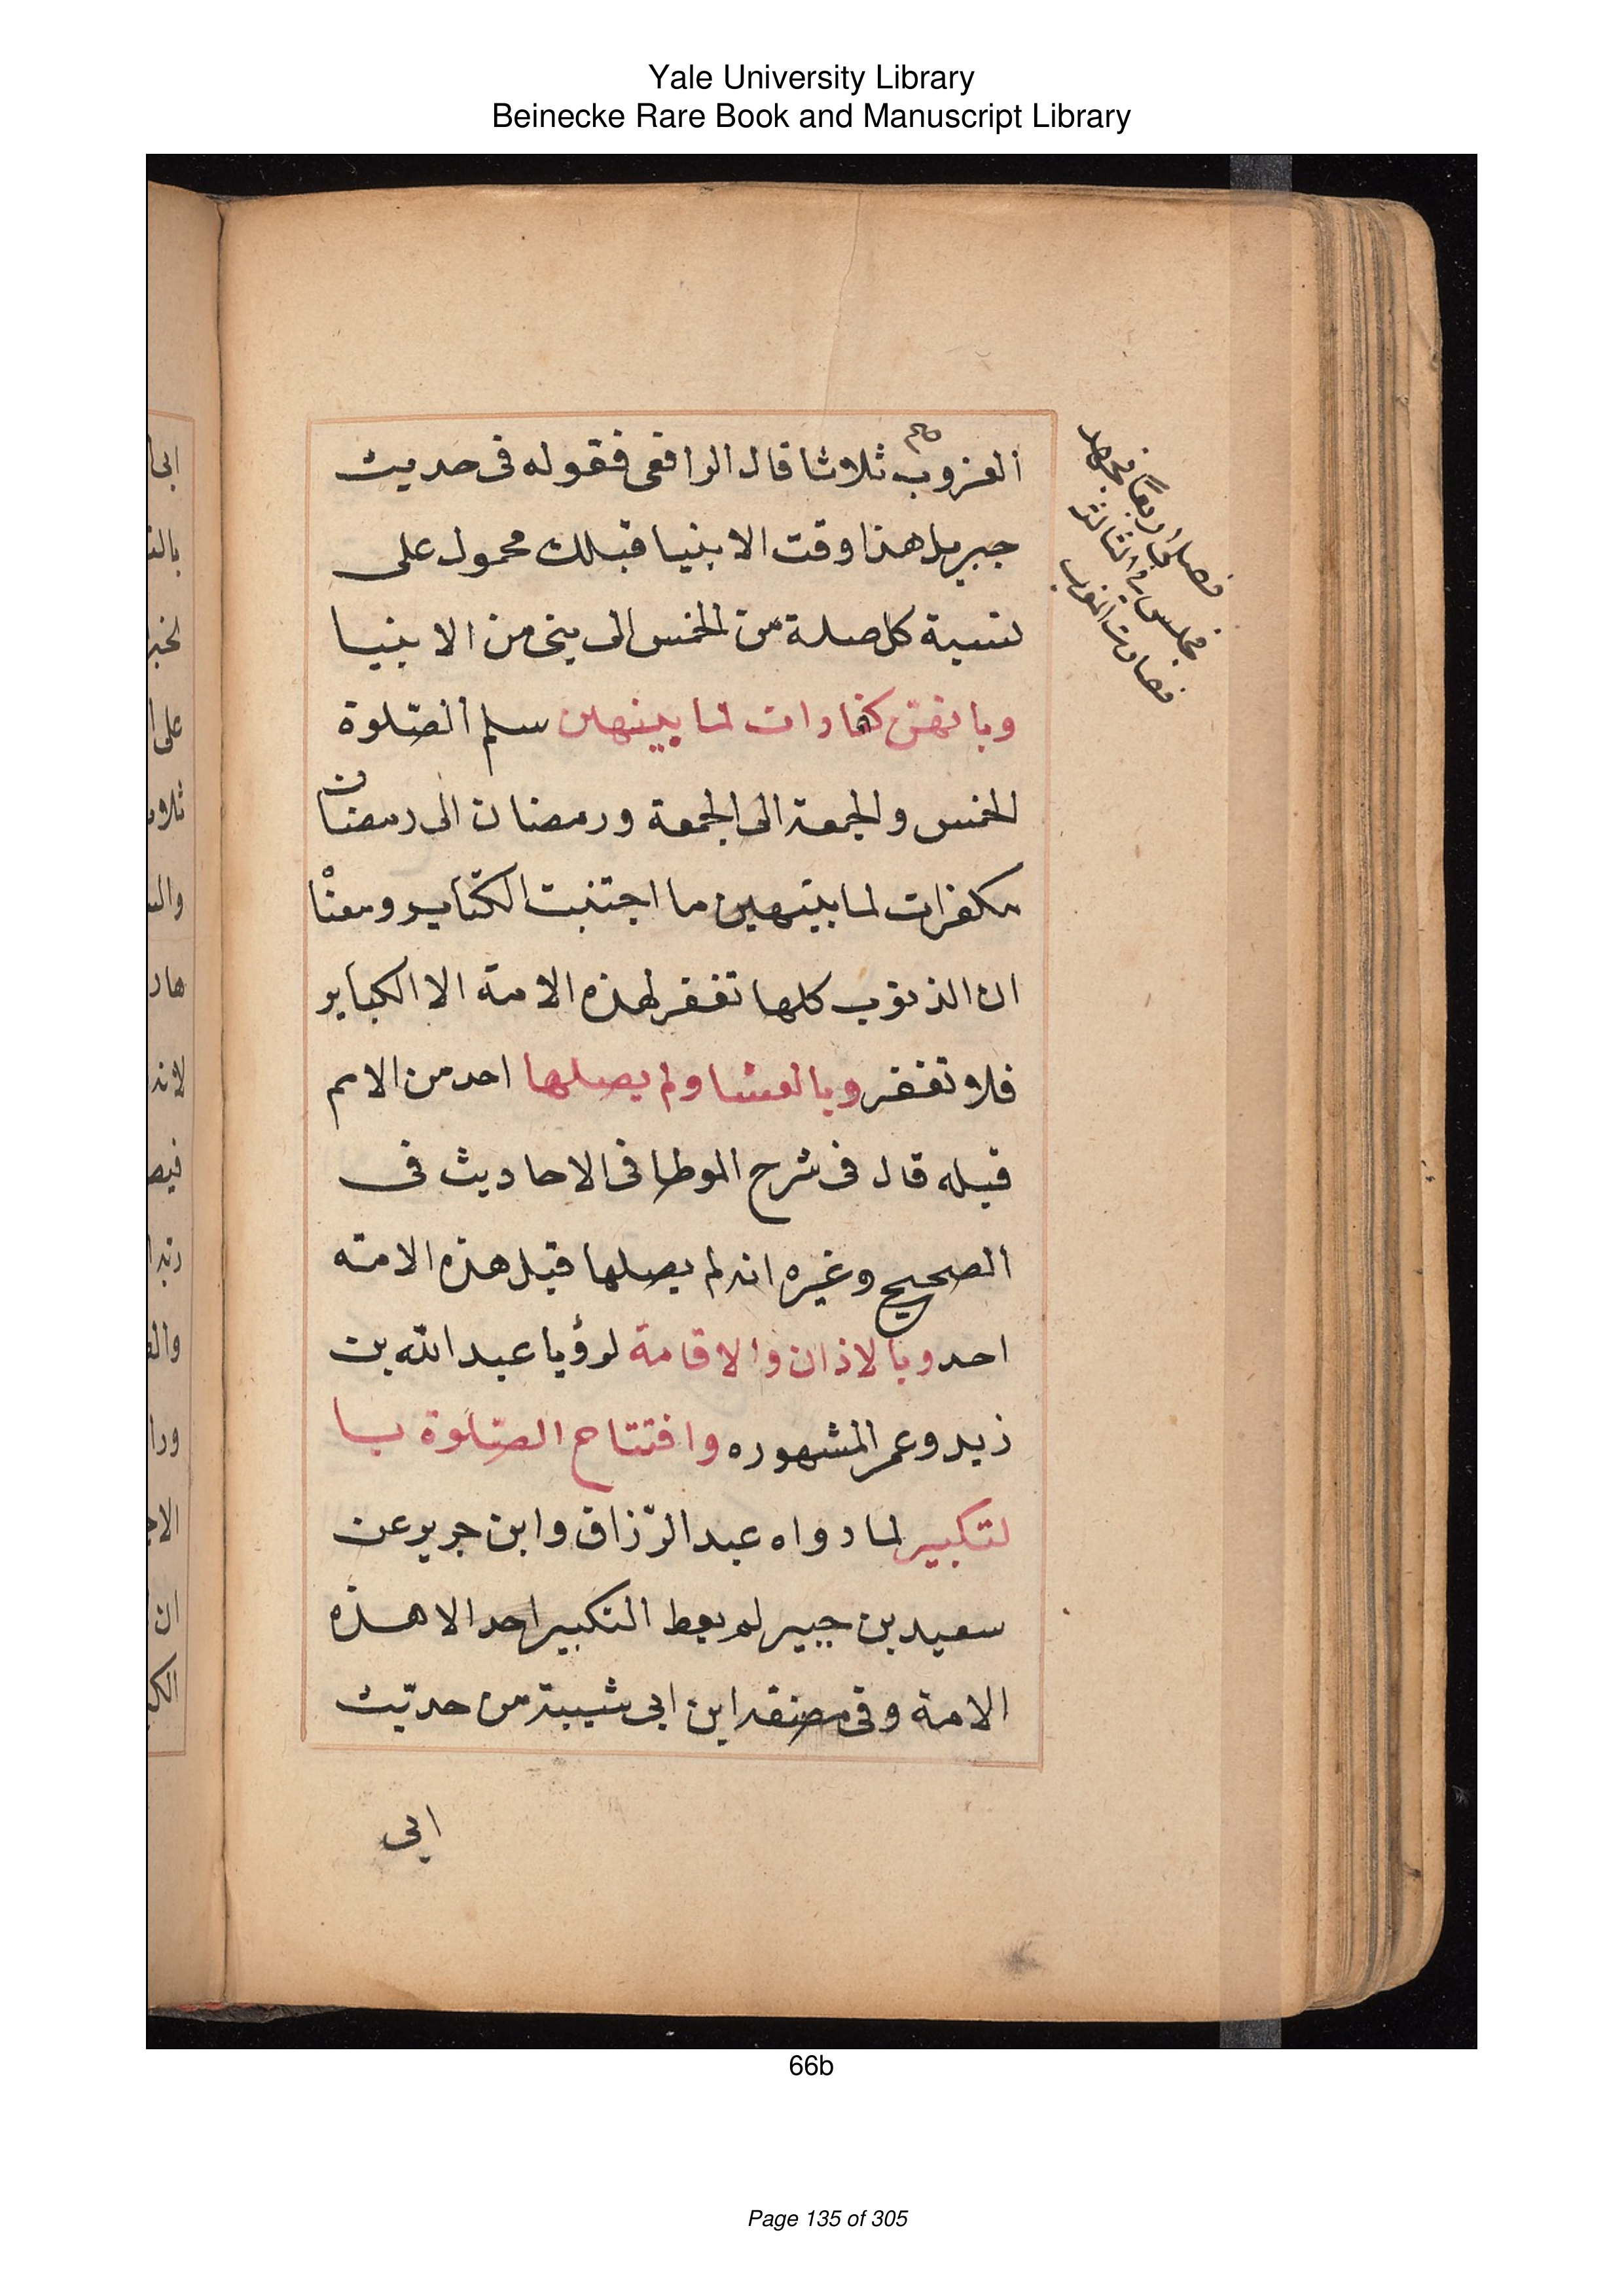 Yale University Library
Beinecke Rare Book and Manuscript Library
الغروب ثلاثا قال الرافعى فقوله فى حديث
جبريل هذا وقت الانبيا قبلك محمول على
نسبة كل صلة من الخمس الى بنى من الانبيا
وبانهن كفارات لما بينهن سلم الصّلوة
الخمس والجمعة الى الجمعة ورمضان الى رمضان
مكفرات لما بينهن ما اجتنبت الكباير ومعنا
ان الذنوب كلها تغفر لهذه الامة الا الكباير
فلا تغفر وبالعشا ولم يصلها احد من الامم
قبله قال فى شرح الموطا فى الاحاديث فى
الصحيح وغيره انه لم يصلها قبل هذه الامة
احد وبالاذان والاقامة لرؤيا عبد الله بن
زيد وعمر المشهوره وافتتاح الصّلوة با
لتكبير لما رواه عبد الرّزاق وابن جرير عن
سعيد بن جبير لم يعط التكبير احد الا هذه
الامة وفى مصنفه ابن ابى شيبة من حديث
ابى
فصلى اربعًا فجهد
فجلس فى الثالثة
فصارت المغرب
66b
Page 135 of 305